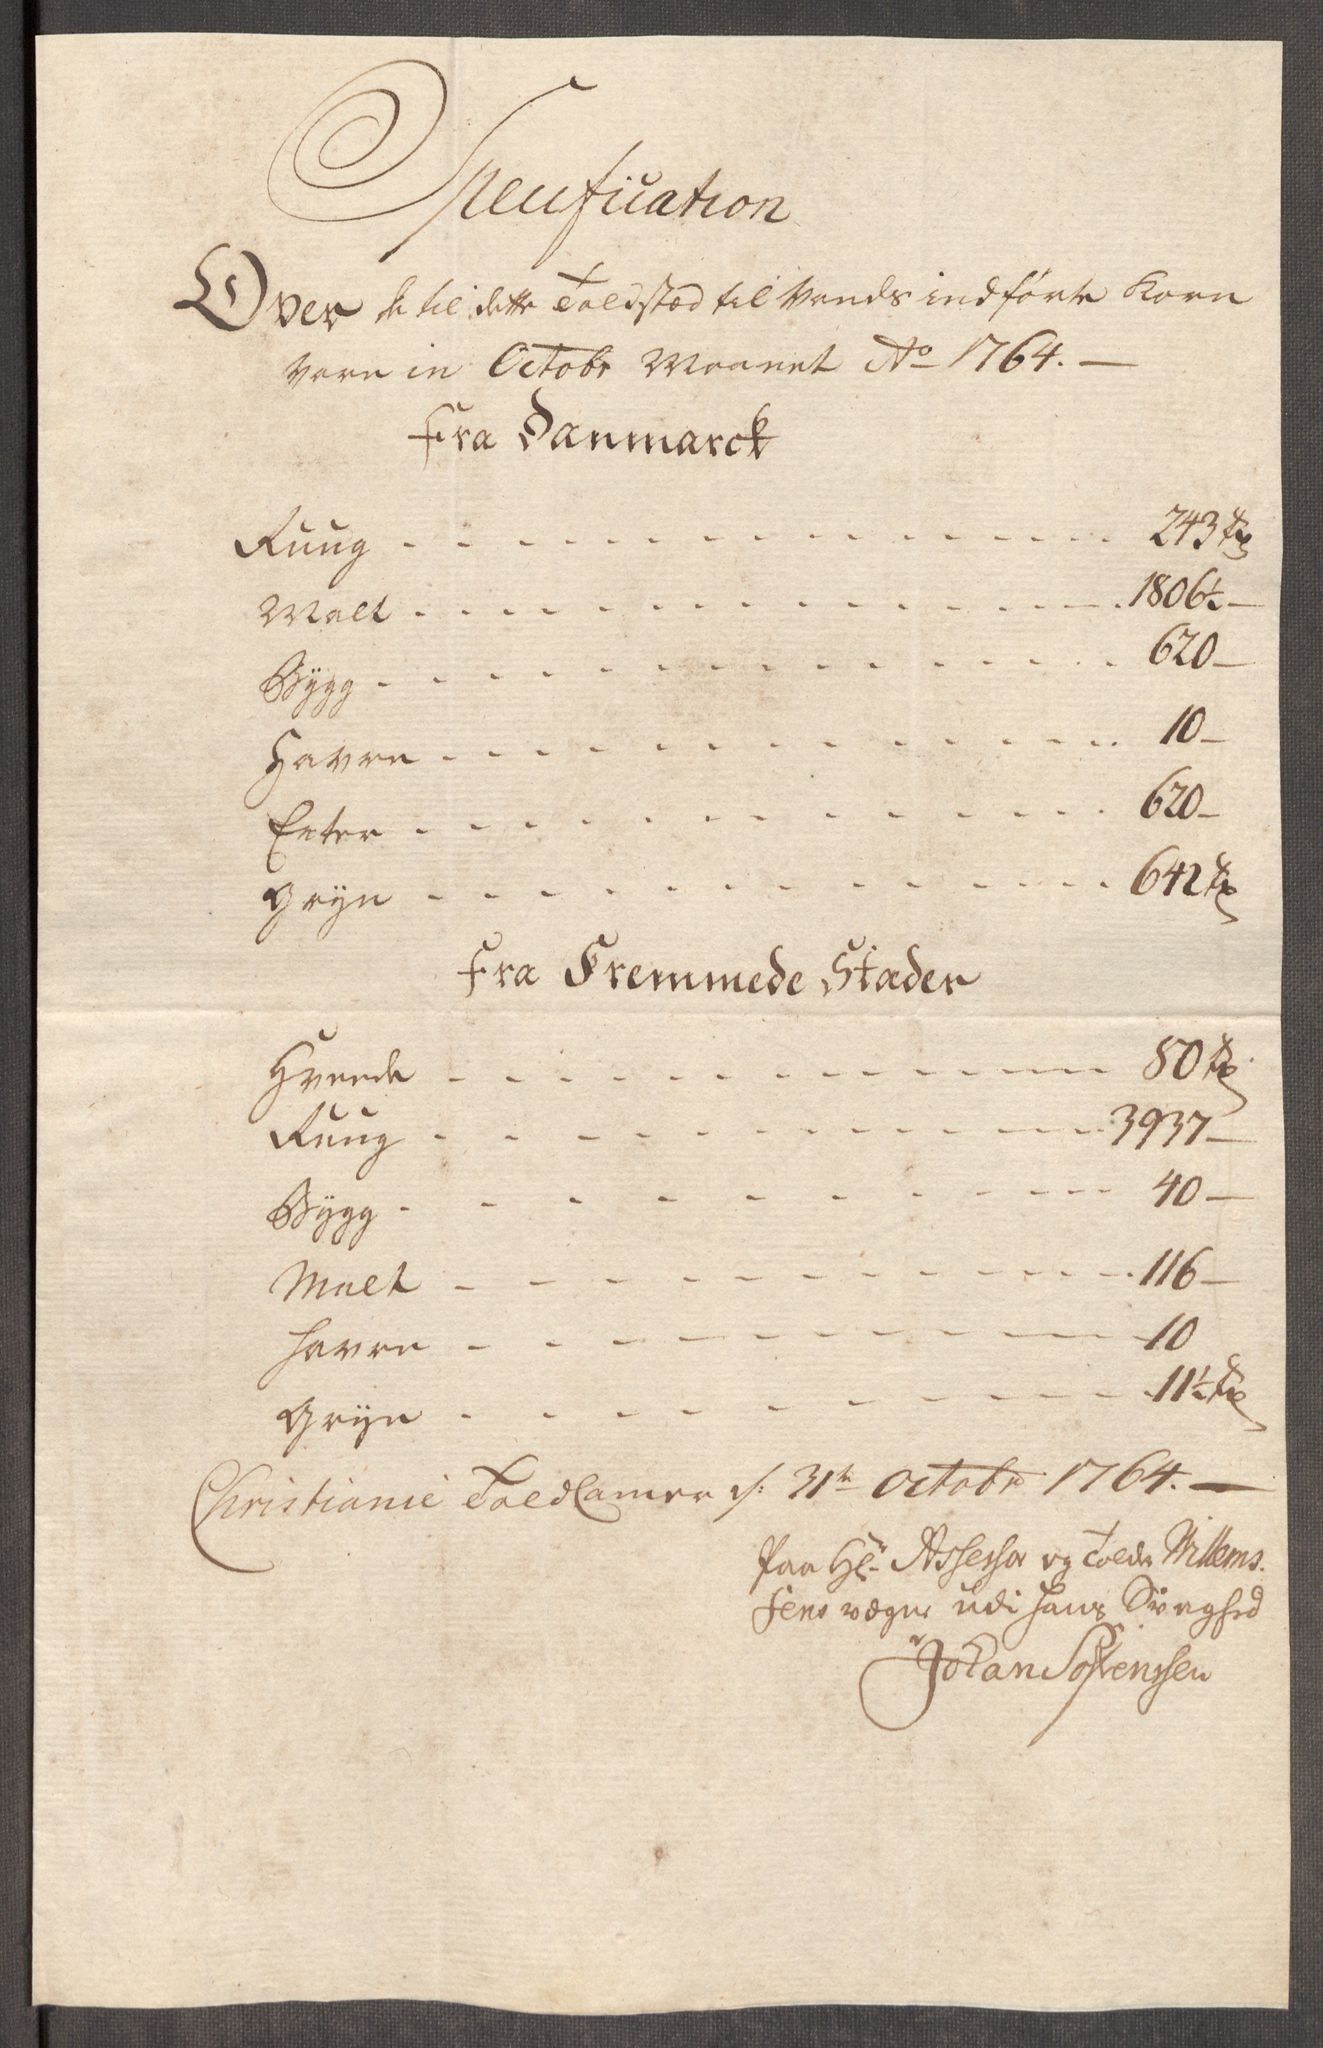 Specification
Over de til dette Toldsted til Vands indførte Korn
Vare in Octobr Maanet Ao 1764. —
Fra Danmarck
Ruug - - - 243 Tr
Malt - - - 1806½ —
Bÿgg - - - 620 —
Havre - - - 10 —
Erter - - - 620 —
Grÿn - - - 642 Tr
Fra Fremmede Stæder
Hvede - - - 80 Tr
Ruug - - - 3937 —
Bÿgg - - - 40 —
Malt - - - 116 —
Havre - - - 10
Grÿn - - - 11½ Tr
Christianie Told Camer d: 31te Octobr 1764. —
Paa Hr Assessor og Tolder Willems-
sens vegne udi hans Svaghed
Johan Sørenssen